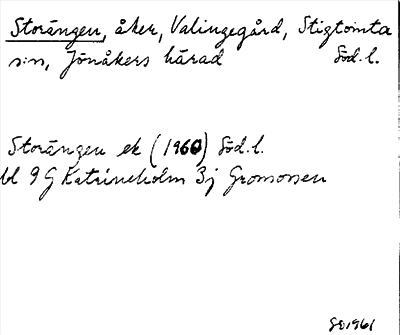 Storängen, åker, Valingegård, Stigtomta
s:n, Jönåkers härad Söd.l.
Storängen ek (1960) Söd.l.
bl 9G Katrineholm 3j Gromossen
SO1961